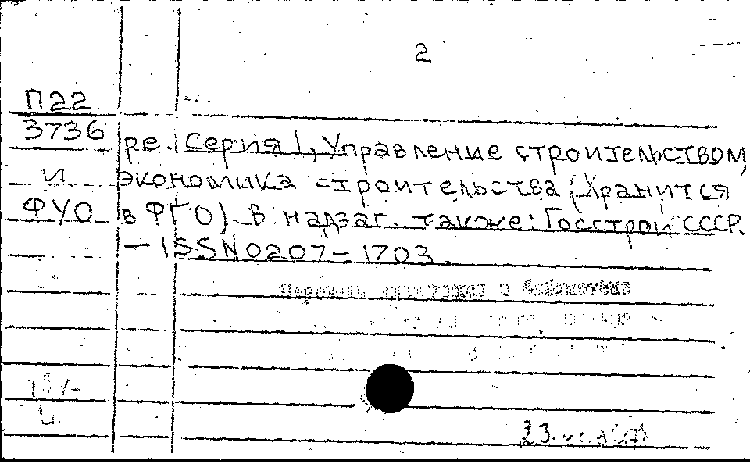 2
П22
3736
и
ФУО
ре. Серия 1, Управление строительством,
экономика строительства (Хранится
в ФГО). В надзаг. также: Госстрой СССР.
— ISSN 0207-1703.